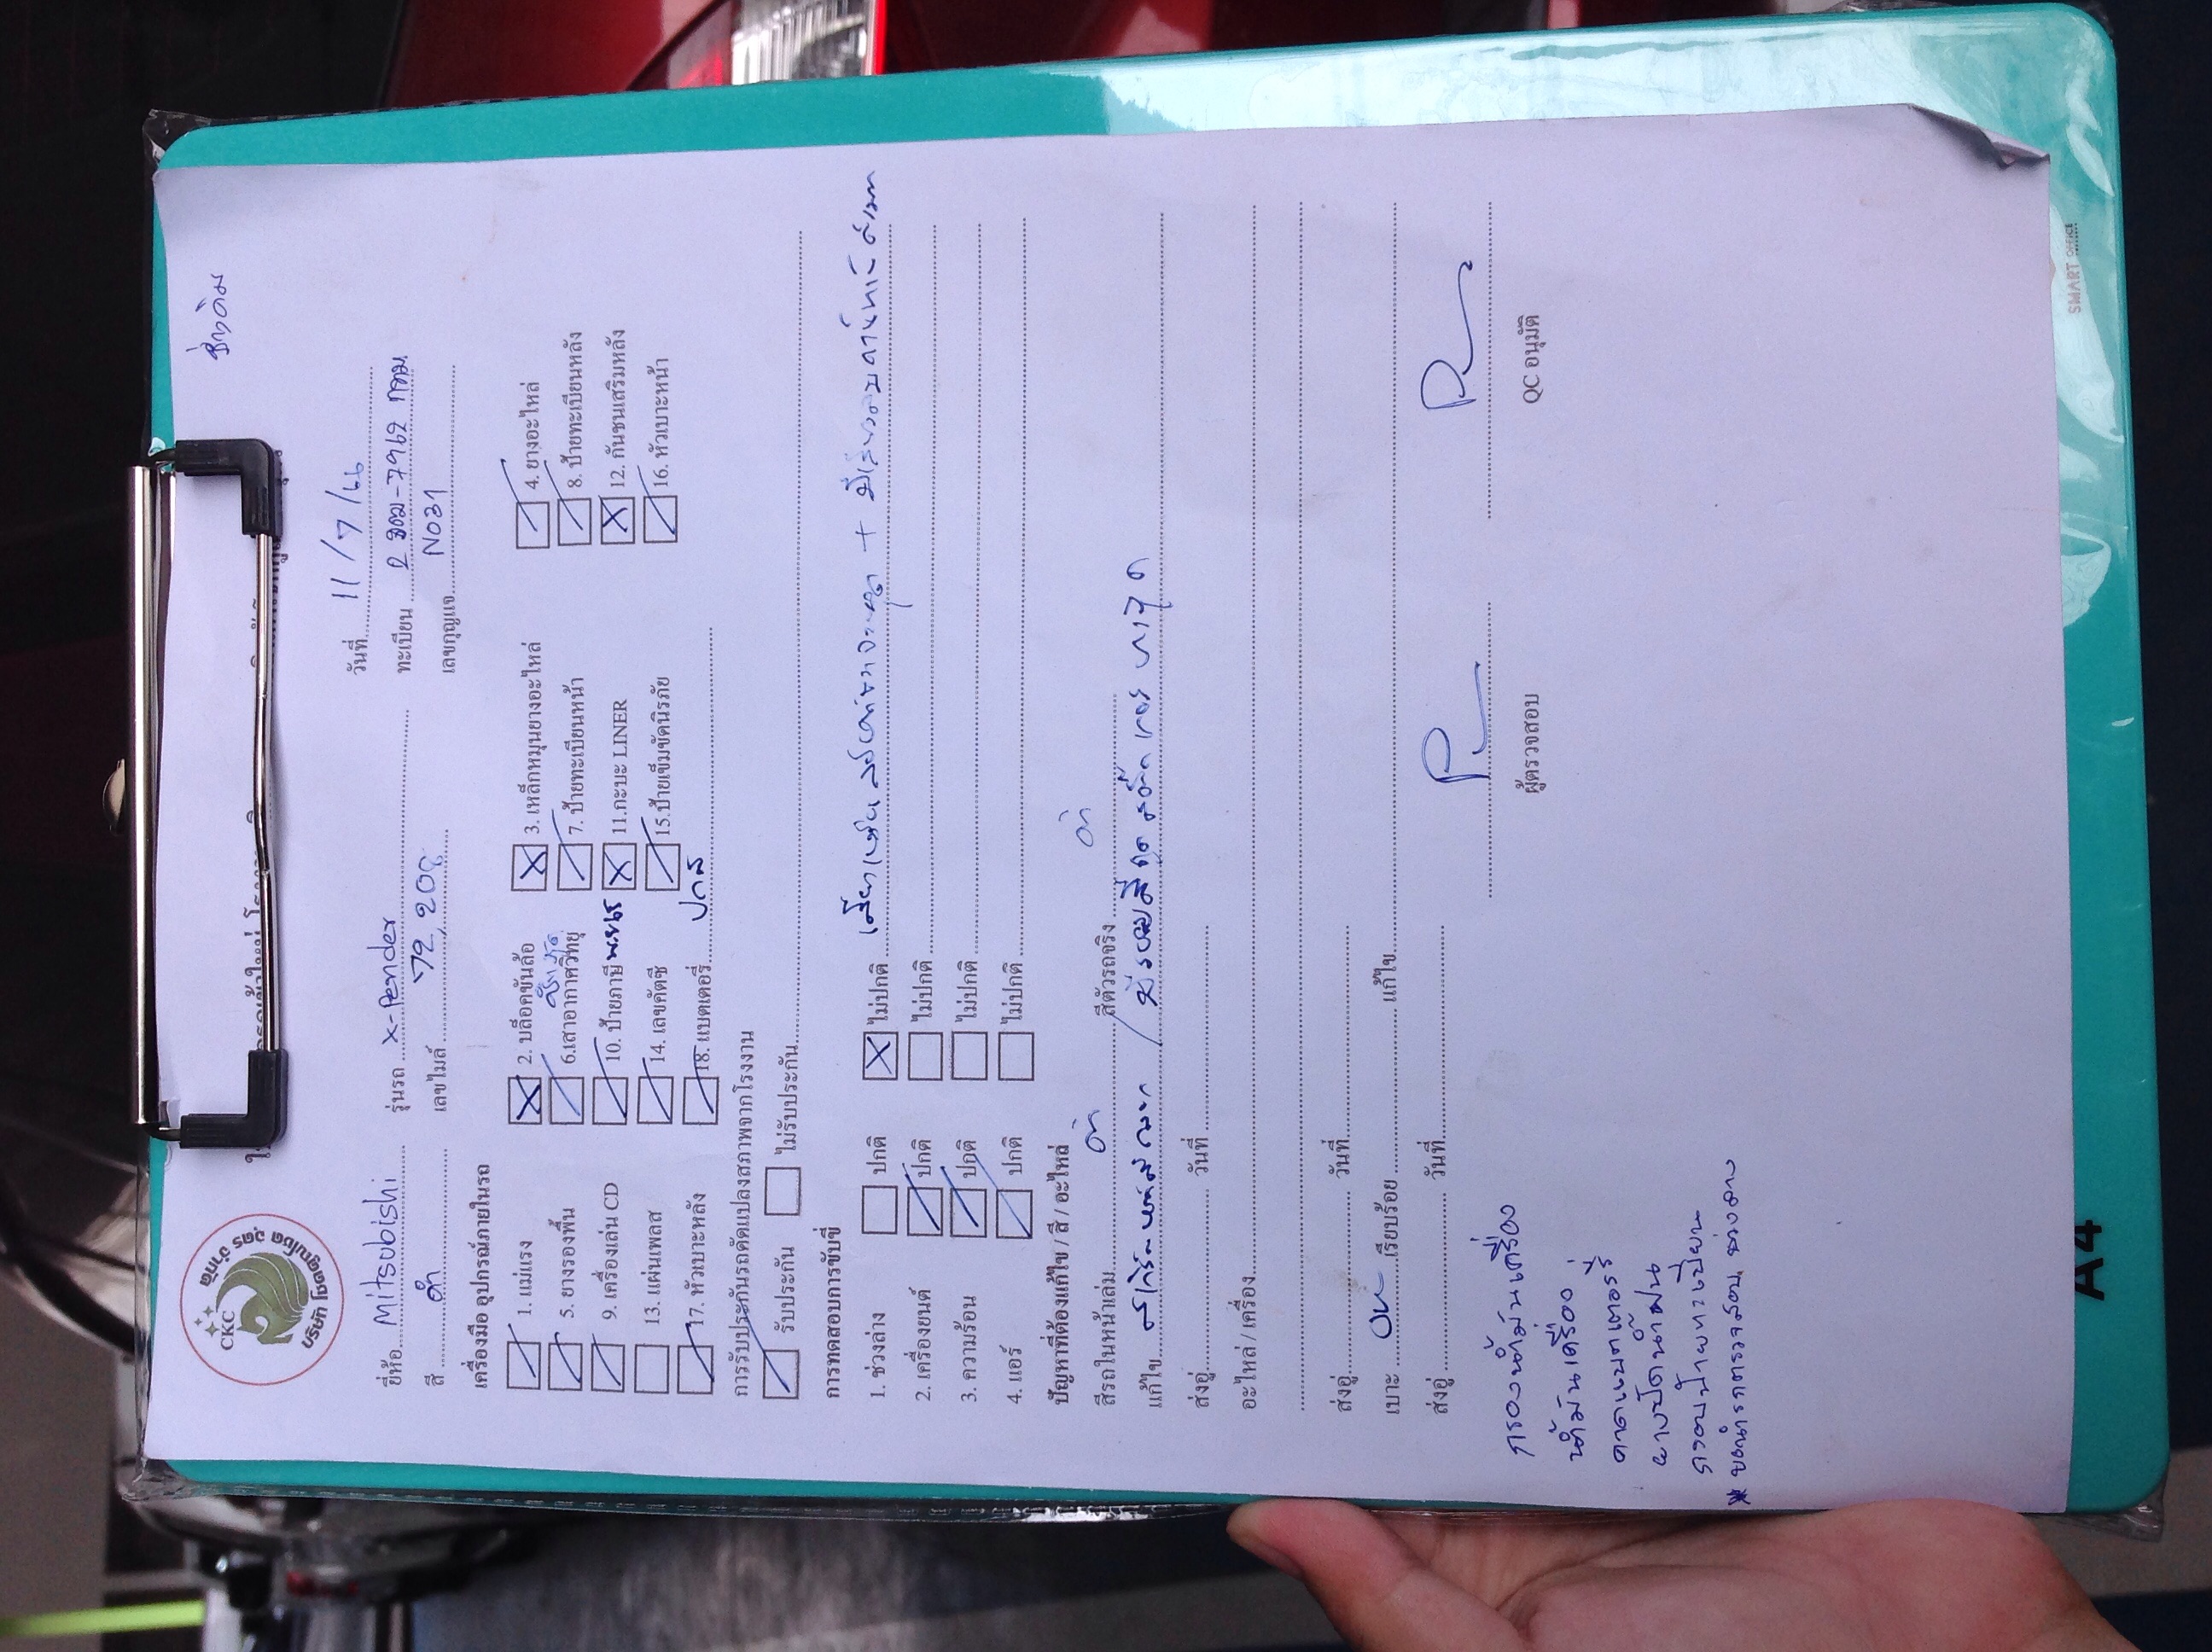 ช่างติม
CKC
บริษัท โชคคูณโชค จิตร จำกัด
วันที่ 11/7/66
ยี่ห้อ Mitsubishi รุ่นรถ X-Pender ทะเบียน 2ขฒ-7962 กทม
สี ดำ เลขไมล์ 72,208 เลขกุญแจ N031
เครื่องมือ อุปกรณ์ภายในรถ
1. แม่แรง 2. บล็อคขันล้อ 3. เหล็กหมุนยางอะไหล่ 4. ยางอะไหล่
5. ยางรองพื้น 6.เสาอากาศวิทยุ 7. ป้ายทะเบียนหน้า 8. ป้ายทะเบียนหลัง
9. เครื่องเล่น CD 10. ป้ายภาษี พ.ย.65 11.กะบะ LINER 12. กันชนเสริมหลัง
13. แผ่นเพลส 14. เลขคัตซี 15.ป้ายเข็มขัดนิรภัย 16. หัวเบาะหน้า
17. หัวเบาะหลัง 18. แบตเตอรี่ ปกติ
การรับประกันรถดัดแปลงสภาพจากโรงงาน
รับประกัน ไม่รับประกัน
การทดสอบการขับขี่
1. ช่วงล่าง ปกติ ไม่ปกติ
2. เครื่องยนต์ ปกติ ไม่ปกติ
3. ความร้อน ปกติ ไม่ปกติ
4. แอร์ ปกติ ไม่ปกติ
ปัญหาที่ต้องแก้ไข / สี / อะไหล่
สีรถในหน้าเล่ม ดำ สีตัวรถจริง ดำ
แก้ไข
ส่งอู่ วันที่
อะไหล่ / เครื่อง
ส่งอู่ วันที่
เบาะ OK เรียบร้อย แก้ไข
ส่งอู่ วันที่
ผู้ตรวจสอบ QC อนุมัติ
กรองน้ำมันเครื่อง
น้ำมันเครื่อง
ถาดแบตเตอรี่
ยางปัดน้ำฝน
กรอบป้ายทะเบียน
* ขอนำรถตรวจสอบ ช่วงล่าง
A4
SMART OFFICE